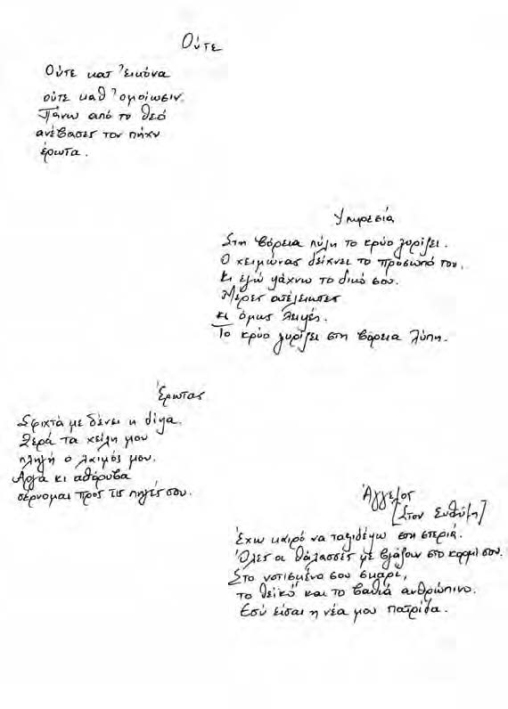 Ούτε
Ούτε κατ' εικόνα
ούτε καθ' ομοίωσιν.
Πάνω από το θεό
ανέβασες τον πήχυ
έρωτα.
Υπηρεσία
Στη βόρεια πύλη το κρύο γυρίζει.
Ο χειμώνας δείχνει το πρόσωπό του.
Κι εγώ ψάχνω το δικό σου.
Μέρες ατέλειωτες
κι όμως λειψές.
Το κρύο γυρίζει στη βόρεια λύπη.
Έρωτας
Σφιχτά με δένει η δίψα.
Ξερά τα χείλη μου
πληγή ο λαιμός μου.
Αργά κι αθόρυβα
σέρνομαι προς τις πηγές σου.
Άγγελος
[Στον Ευθύμη]
Έχω καιρό να ταξιδέψω στη στεριά.
Όλες οι θάλασσες με βγάζουν στο κορμί σου.
Στο νοτισμένο σου σκαρί,
το θεϊκό και το βαθιά ανθρώπινο.
Εσύ είσαι η νέα μου πατρίδα.